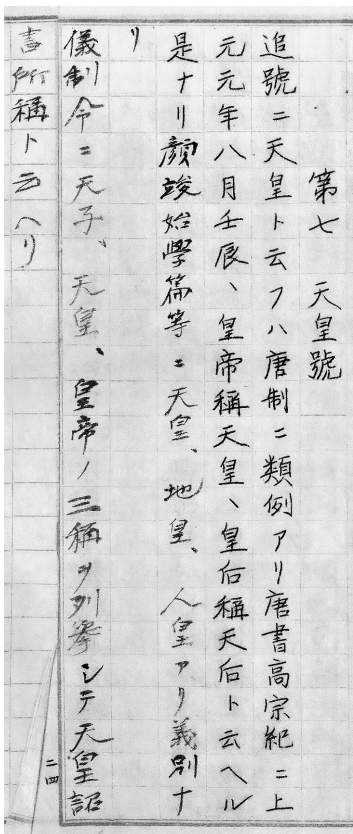 第七　天皇號
追號ニ天皇ト云フハ唐制ニ類例アリ唐書高宗紀ニ上
元元年八月壬辰、皇帝稱天皇、皇后稱天后ト云ヘル
是ナリ顔竣始學篇等ニ天皇、地皇、人皇アリ義別ナ
リ
儀制令ニ天子、天皇、皇帝ノ三稱ヲ列擧シテ天皇詔
書所稱ト云ヘリ
二四